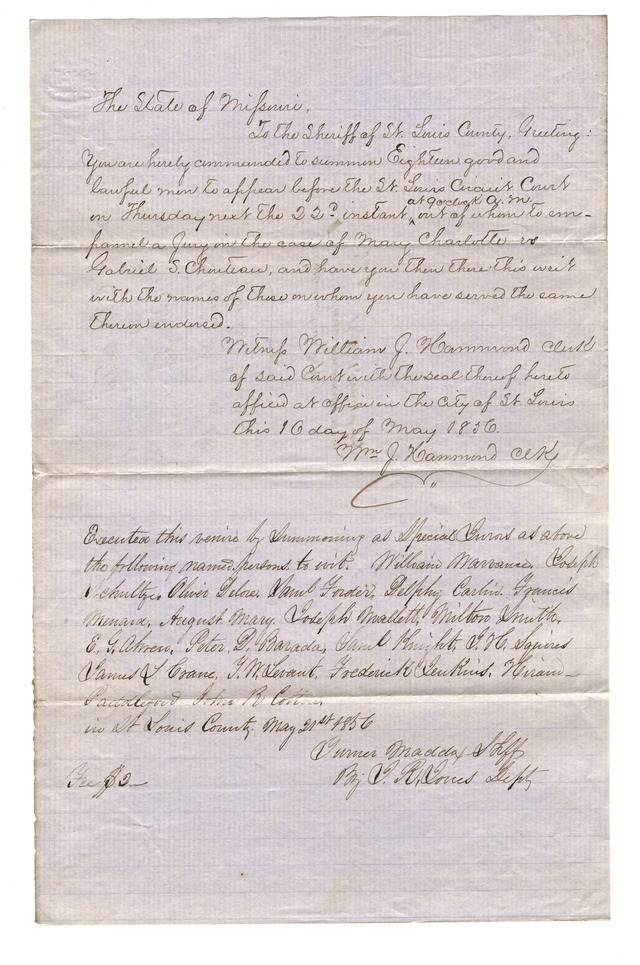 The State of Missouri.
To the Sheriff of St. Louis County, Greeting:
You are hereby commanded to summon Eighteen good and
lawful men to appear before the St. Louis Circuit Court
on Thursday next the 22d instant, at 9 oclock A. M. out of whom to em-
pannel a Jury in the case of Mary Charlotte vs
Gabriel S. Chouteau, and have you then there this writ
with the names of those on whom you have served the same
thereon endorsed.
Witness William J. Hammond clerk
of said Court with the seal thereof hereto
affixed at office in the city of St Louis
this 16 day of May 1856.
Wm J. Hammond Clk
Executed this venire by Summoning as Special Jurors as above
the following named persons to wit. William Joseph
Schultze Oliver Delore, Saml Forder, Delphy Carlin, Francis
Menard, August Mary, Joseph Mallett, Milton Smith,
E. G. Ahren, Peter D. Barada, Saml Knight, J. H. Squires
James L Crane, T. W. Levant, Frederick Jenkins, Hiram
John R
in St Louis County, May 21st 1856
Turner Maddox Shff
By J. R. Jones Dept
Fee $